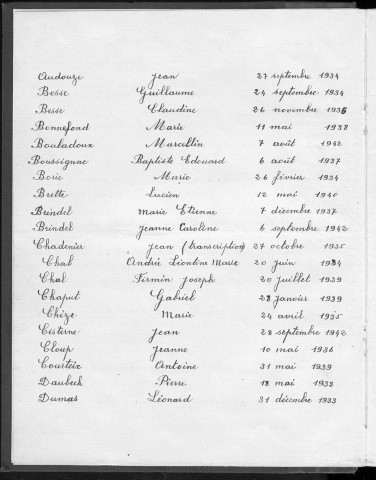 Audouze Jean 27 septembre 1934
Besse Guillaume 24 septembre 1934
Besse Claudine 26 novembre 1935
Bonnefond Marie 11 mai 1938
Bouladoux Marcellin 7 août 1942
Boussignac Baptiste Edouard 6 août 1937
Borie Marie 26 février 1934
Brette Lucien 12 mai 1940
Brindel Marie Etienne 7 décembre 1937
Brindel Jeanne Caroline 6 septembre 1942
Chadenier Jean (transcription) 27 octobre 1935
Chal André Léontine Marie 20 juin 1934
Chal Firmin Joseph 20 juillet 1939
Chaput Gabriel 28 janvier 1939
Chèze Marie 24 avril 1935
Cisterne Jean 28 septembre 1942
Cloup Jeanne 10 mai 1936
Courteix Antoine 31 mai 1939
Daubech Pierre 18 mai 1933
Dumas Léonard 31 décembre 1933